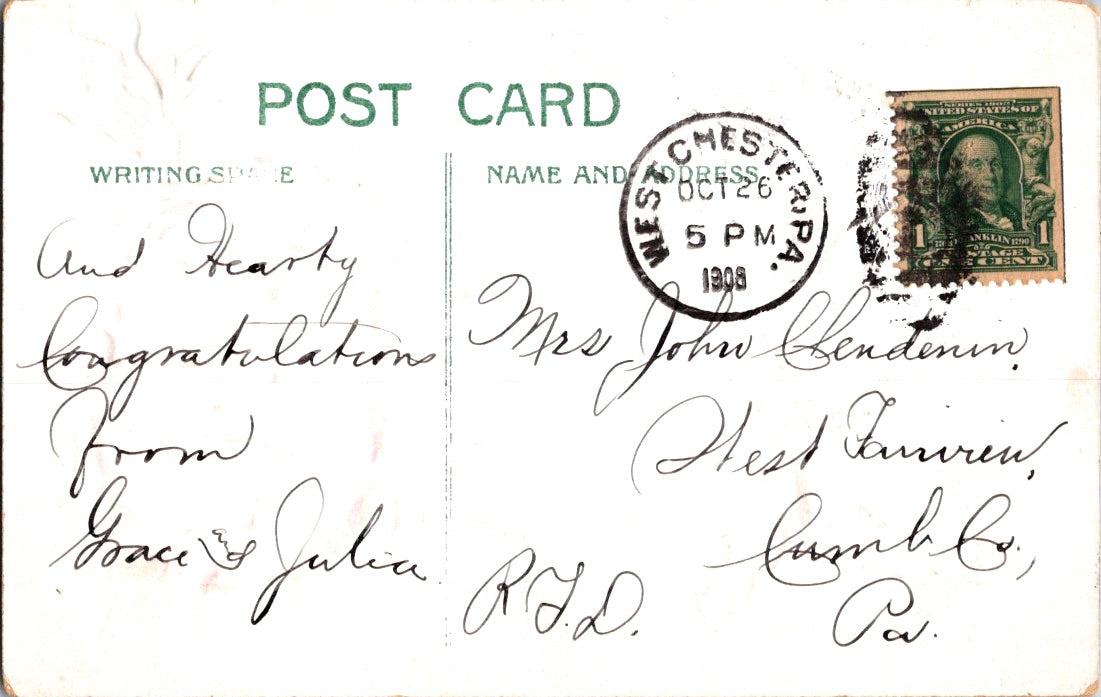 POST CARD
WRITING SPACE
NAME AND ADDRESS
WEST CHESTER, PA.
OCT 26
5 PM
1908
SERIES 1902
UNITED STATES OF
AMERICA
1 FRANKLIN 1790 1
POSTAGE
ONE CENT
And Hearty
Congratulations
from
Grace and Julia
Mrs John Clendenin,
West Fairview,
Cumb Co.,
Pa.
R.F.D.